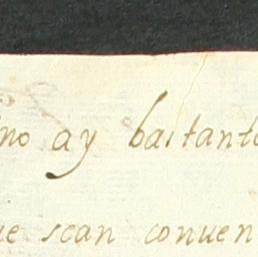 no ay bastant
ue sean conuen